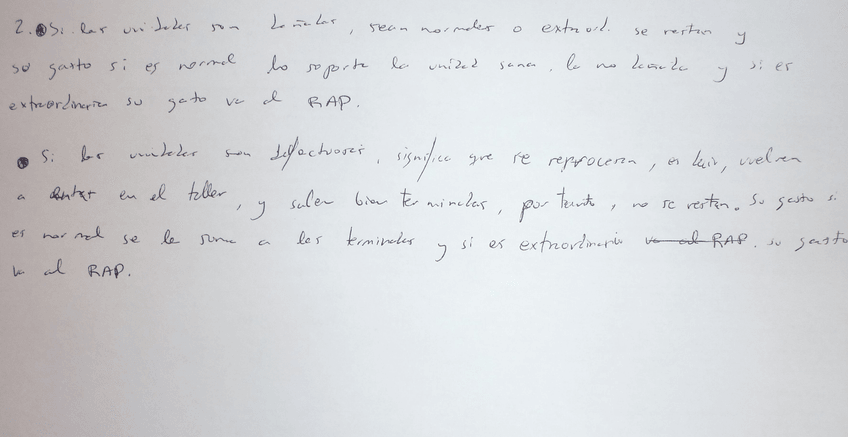 2. • Si las unidades son dañadas, sean normales o extraord. se restan y
su gasto si es normal lo soporta la unidad sana, la no dañada y si es
extraordinaria su gato va al RAP.
• Si las unidades son defectuosas, significa que se reprocesan, es decir, vuelven
a entrar en el taller, y salen bien terminadas, por tanto, no se restan. Su gasto si
es normal se le suma a las terminadas y si es extraordinario va al RAP. su gasto
va al RAP.